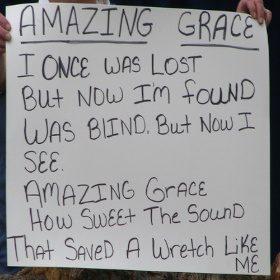 AMAZING GRACE
I ONCE WAS LOST
BUt NOW Im foUND
WAS BlIND, BUt NOW I
SEE.
AMAZING GRACE
HOW SWEET The SouND
That SAVED A WRetch LiKE
ME